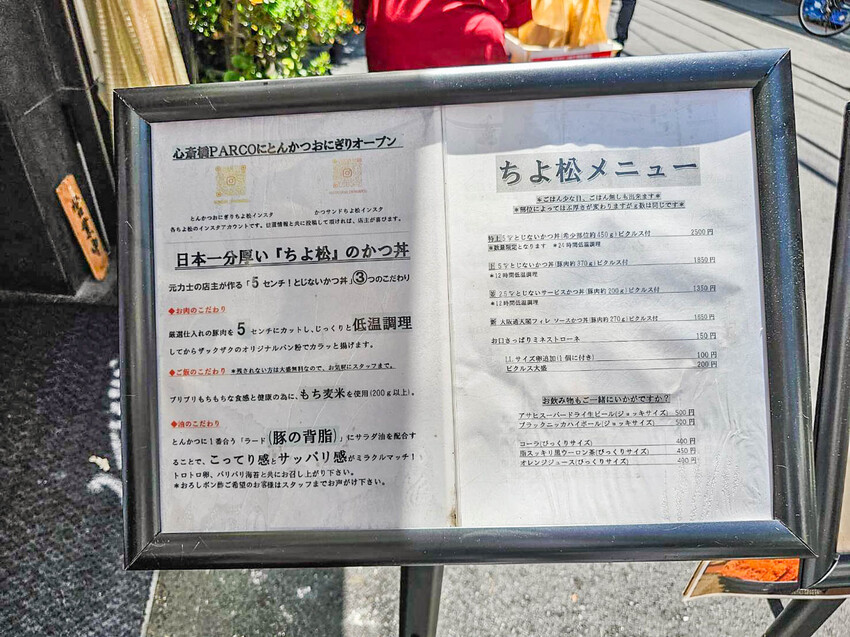 心斎橋PARCOにとんかつおにぎりオープン
とんかつおにぎりちよ松インスタ
かつサンドちよ松インスタ
各ちよ松のインスタアカウントです。位置情報と共に投稿して頂ければ、店主が喜びます。
日本一分厚い『ちよ松』のかつ丼
元力士の店主が作る「5センチ!とじないかつ丼」③つのこだわり
◆お肉のこだわり
厳選仕入れの豚肉を5センチにカットし、じっくりと低温調理
してからザックザクのオリジナルパン粉でカラッと揚げます。
◆ご飯のこだわり *残されない方は大盛無料なので、お気軽にスタッフまで。
プリプリもちもちな食感と健康の為に、もち麦米を使用(200g以上)。
◆油のこだわり
とんかつに1番合う「ラード(豚の背脂)」にサラダ油を配合す
ることで、こってり感とサッパリ感がミラクルマッチ!
トロトロ卵、パリパリ海苔と共にお召し上がり下さい。
*おろしポン酢ご希望のお客様はスタッフまでお声がけ下さい。
ちよ松メニュー
*ごはん少な目、ごはん無しも出来ます*
*部位によってはぶ厚さが変わりますがg数は同じです*
特上5㌢とじないかつ丼(希少部位約450g)ピクルス付 2500円
*数量限定となります *24時間低温調理
5㌢とじないかつ丼(豚肉約370g)ピクルス付 1850円
*12時間低温調理
2.5㌢とじないサービスかつ丼(豚肉約200g)ピクルス付 1350円
*12時間低温調理
新 大阪通天閣フィレ ソースかつ丼(豚肉約270g)ピクルス付 1650円
お口さっぱりミネストローネ 150円
LLサイズ卵追加(1個に付き) 100円
ピクルス大盛 200円
お飲み物もご一緒にいかがですか?
アサヒスーパードライ生ビール(ジョッキサイズ) 500円
ブラックニッカハイボール(ジョッキサイズ) 500円
コーラ(びっくりサイズ) 400円
脂スッキリ黒ウーロン茶(びっくりサイズ) 450円
オレンジジュース(びっくりサイズ) 400円